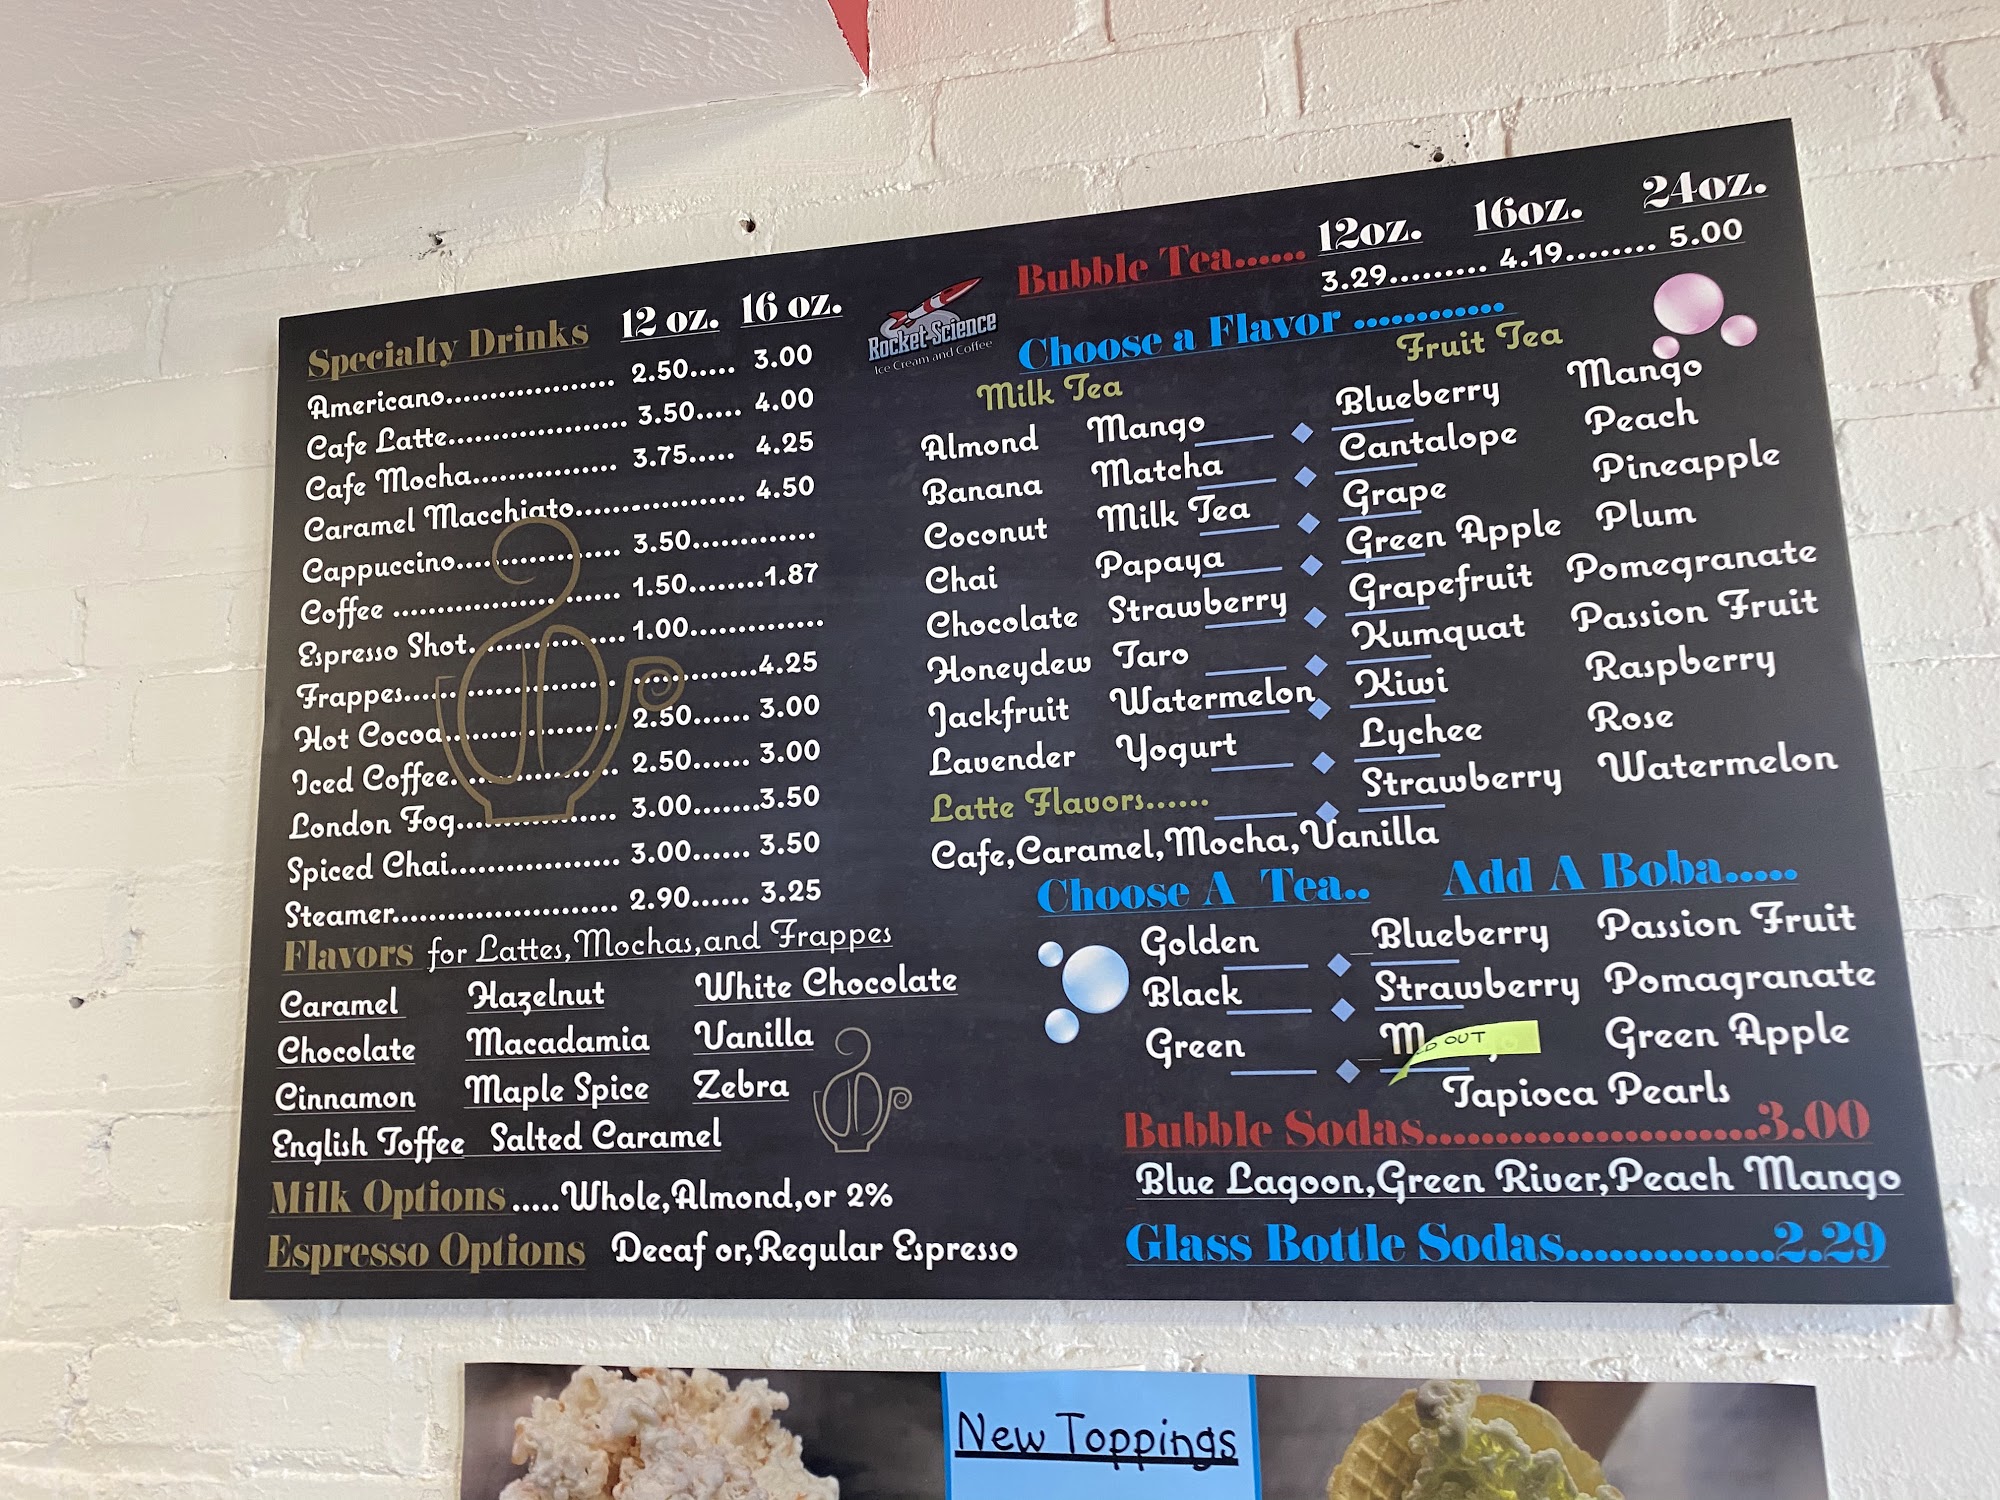 Specialty Drinks 12 oz. 16 oz.
Americano................. 2.50..... 3.00
Cafe Latte.................... 3.50..... 4.00
Cafe Mocha................ 3.75..... 4.25
Caramel Macchiato................... 4.50
Cappuccino.................. 3.50.............
Coffee ......................... 1.50........1.87
Espresso Shot................ 1.00..............
Frappes...................................4.25
Hot Cocoa................... 2.50...... 3.00
Iced Coffee.................. 2.50...... 3.00
London Fog.................. 3.00.......3.50
Spiced Chai................... 3.00...... 3.50
Steamer......................... 2.90...... 3.25
Flavors for Lattes,Mochas,and Frappes
Caramel Hazelnut White Chocolate
Chocolate Macadamia Vanilla
Cinnamon Maple Spice Zebra
English Toffee Salted Caramel
Milk Options.....Whole,Almond,or 2%
Espresso Options Decaf or,Regular Espresso
Rocket Science
Ice Cream and Coffee
12oz. 16oz. 24oz.
Bubble Tea...... 3.29......... 4.19......... 5.00
Choose a Flavor ............
Milk Tea
Almond Mango
Banana Matcha
Coconut Milk Tea
Chai Papaya
Chocolate Strawberry
Honeydew Taro
Jackfruit Watermelon
Lavender Yogurt
Fruit Tea
Blueberry Mango
Cantalope Peach
Grape Pineapple
Green Apple Plum
Grapefruit Pomegranate
Kumquat Passion Fruit
Kiwi Raspberry
Lychee Rose
Strawberry Watermelon
Latte Flavors......
Cafe,Caramel,Mocha,Vanilla
Choose A Tea..
Golden
Black
Green
Add A Boba.....
Blueberry Passion Fruit
Strawberry Pomagranate
OUT Green Apple
Tapioca Pearls
Bubble Sodas........................3.00
Blue Lagoon,Green River,Peach Mango
Glass Bottle Sodas...............2.29
New Toppings